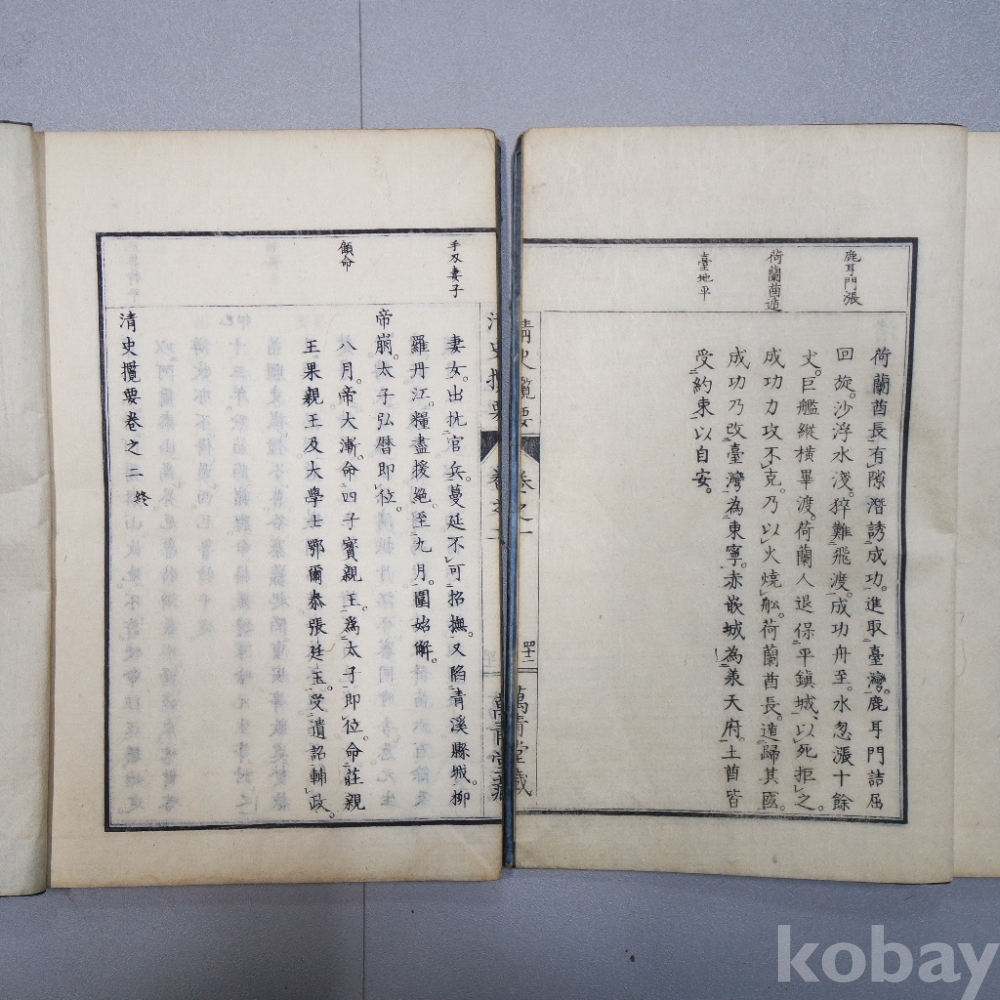 鹿耳門漲
荷蘭酋遁
臺地平
荷蘭酋長有隙潛誘成功進取臺灣鹿耳門詰屈
回旋。沙浮水淺。猝難飛渡。成功舟至。水忽漲十餘
丈。巨艦縱橫畢渡。荷蘭人退保平鎮城、以死拒之
成功力攻不克。乃以火燒舩。荷蘭酋長。遁歸其國
成功乃改臺灣為東寧。赤嵌城為承天府。土酋皆
受約束以自安。
清史攬要
卷之一
四十二
萬青堂藏
清史攬要
卷之二
萬青堂藏
手刃妻子
顧命
妻女。出抗官兵。蔓延不可招撫。又陷青溪縣城。柳
羅丹江。糧盡援絕。至九月。圍始解。
帝崩。太子弘曆即位。
八月。帝大漸。命四子寶親王。為太子即位。命莊親
王果親王及大學士鄂爾泰張廷玉。受遺詔輔政。
清史攬要卷之二終
kobay